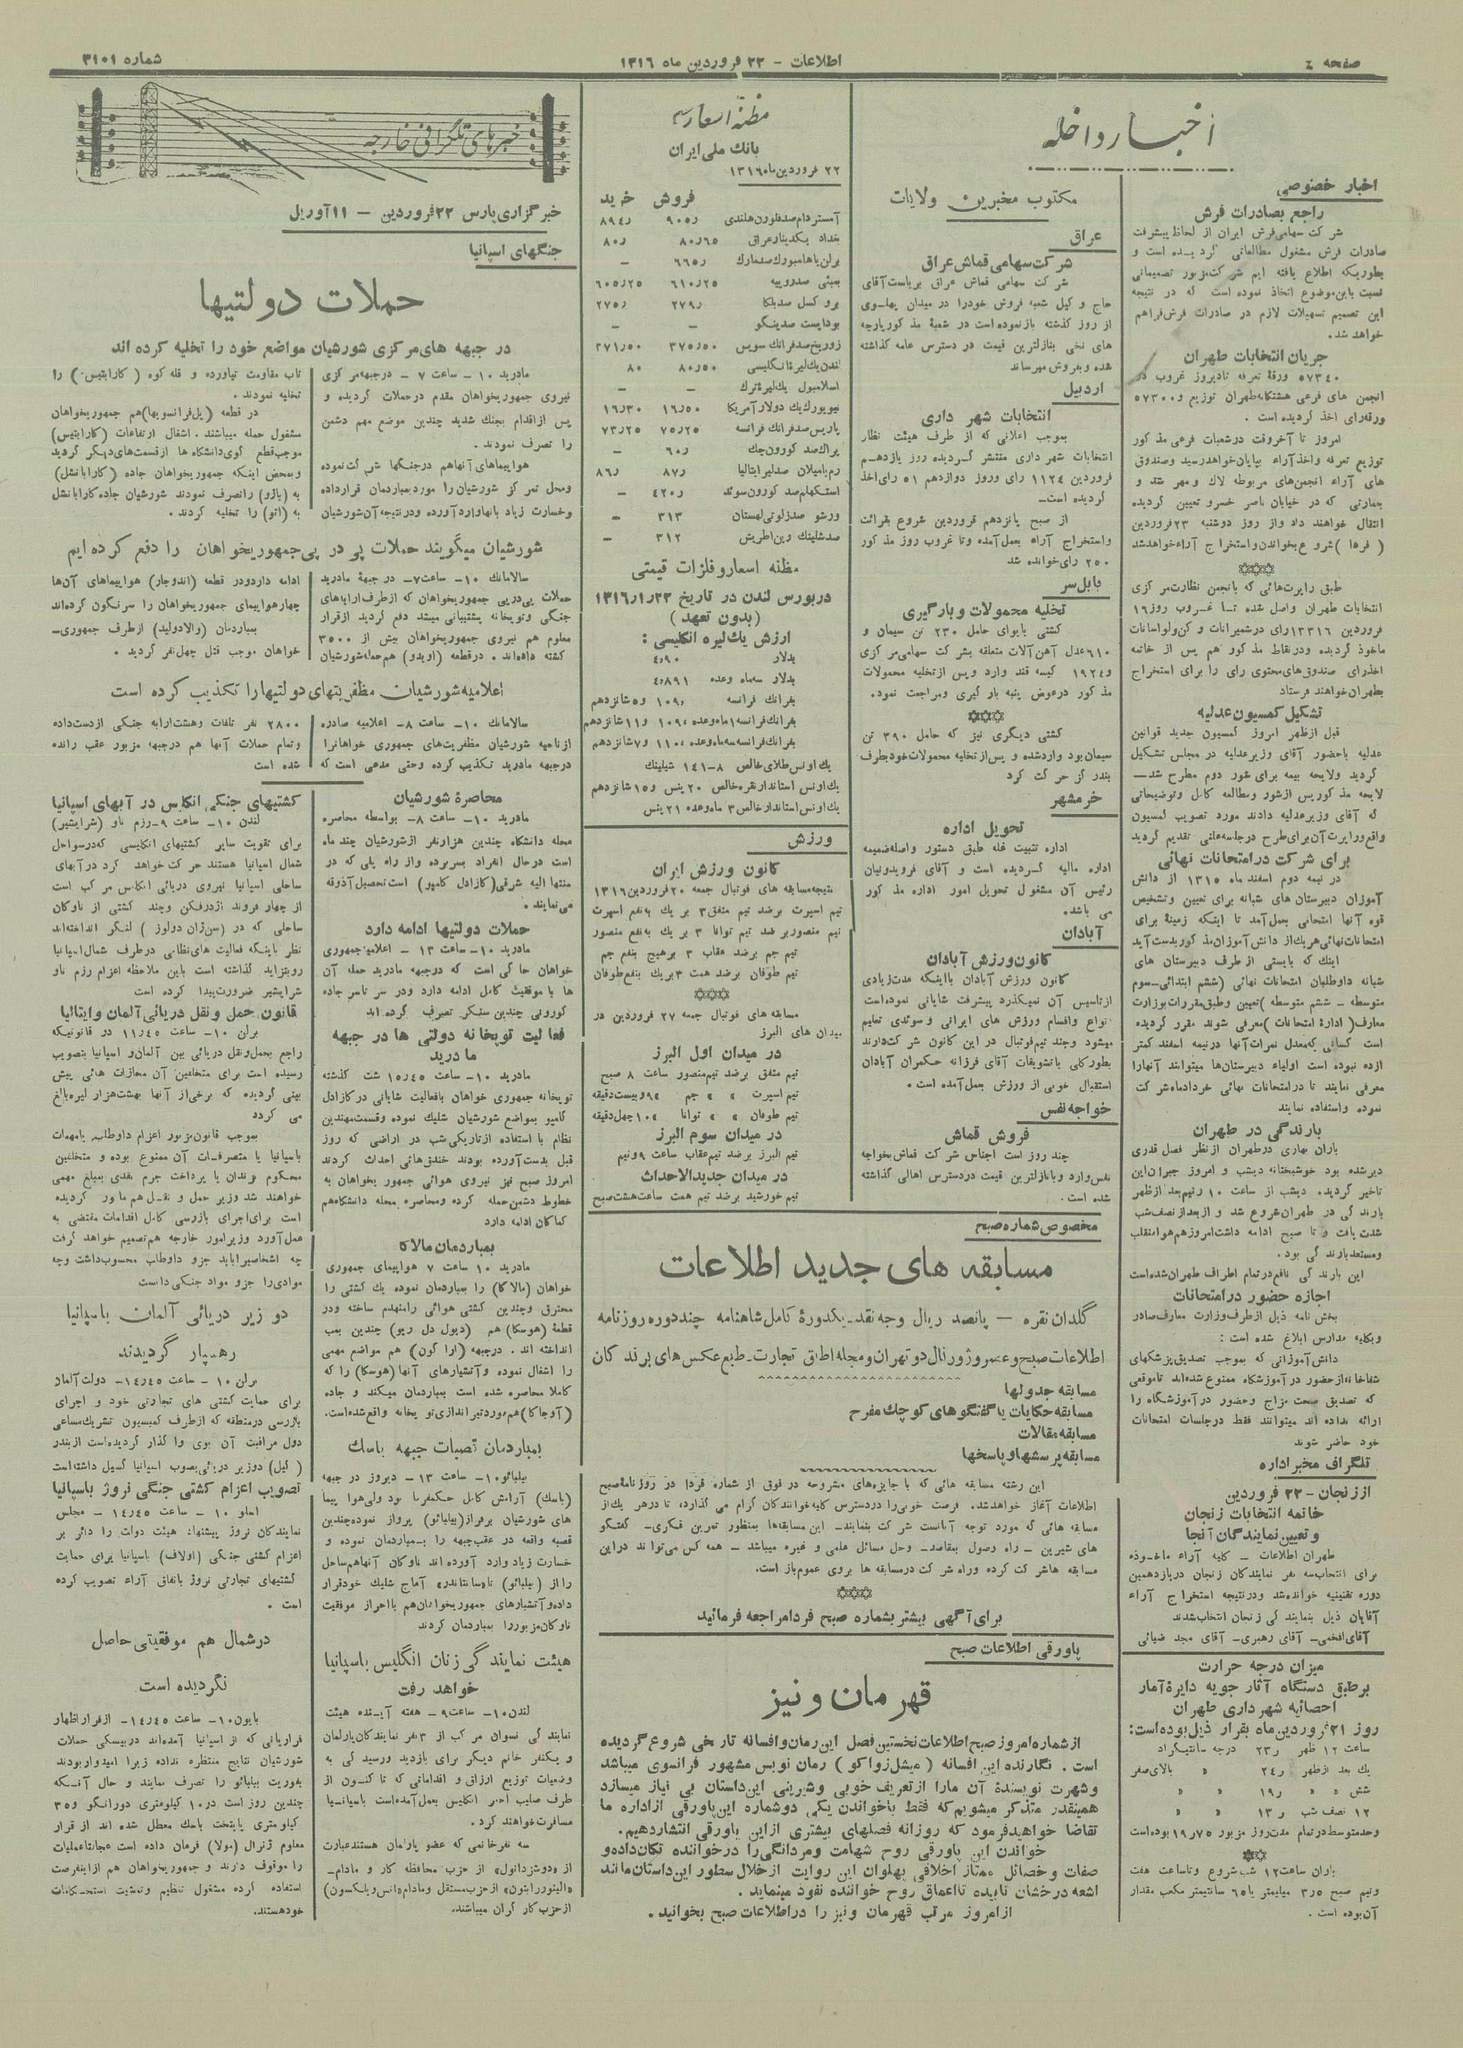 صفحه ٤
اطلاعات - ۲۳ فروردین ماه ۱۳۱۶
شماره ۳۱۰۱
اخبار داخله
اخبار خصوصی
راجع بصادرات فرش
شرکت سهامی فرش ایران از لحاظ پیشرفت
صادرات فرش مشغول مطالعاتی گردیده است و
بطوریکه اطلاع یافته ایم شرکت مزبور تصمیماتی
نسبت باین موضوع اتخاذ نموده است که در نتیجه
این تصمیم تسهیلات لازم در صادرات فرش فراهم
خواهد شد.
جریان انتخابات طهران
۵۷۳٤۰ ورقه تعرفه تا دیروز غروب در
انجمن های فرعی هشتگانه طهران توزیع و ۵۷۳۰۰
ورقه رای اخذ گردیده است .
امروز تا آخر وقت در شعبات فرعی مذکور
توزیع تعرفه و اخذ آراء بپایان خواهد رسید و صندوق
های آراء انجمن های مربوطه لاک و مهر شد و
بعمارتی که در خیابان ناصر خسرو تعیین گردیده
انتقال خواهند داد و از روز دوشنبه ۲۳ فروردین
( فردا ) شروع بخواندن و استخراج آراء خواهد شد
طبق راپرت هائی که بانجمن نظارت مرکزی
انتخابات طهران واصل شده تا غروب روز ۱۶
فروردین ۱۳۳۱۶ رای در شمیرانات و کن و لواسانات
ماخوذ گردیده و در نقاط مذکور هم پس از خاتمه
اخذ رای صندوق های محتوی رای را برای استخراج
بطهران خواهند فرستاد
تشکیل کمسیون عدلیه
قبل از ظهر امروز کمسیون جدید قوانین
عدلیه با حضور آقای وزیر عدلیه در مجلس تشکیل
گردید و لایحه بیمه برای شور دوم مطرح شد -
لایحه مذکور پس از شور و مطالعه کامل و توضیحاتی
که آقای وزیر عدلیه دادند مورد تصویب کمسیون
واقع و راپرت آن برای طرح در جلسه علنی تقدیم گردید
برای شرکت در امتحانات نهائی
در نیمه دوم اسفند ماه ۱۳۱۵ از دانش
آموزان دبیرستان های شبانه برای تعیین و تشخیص
قوه آنها امتحانی بعمل آمد تا اینکه زمینهٔ برای
امتحانات نهائی هر یک از دانش آموزان مذکور بدست آید
اینک که بایستی از طرف دبیرستان های
شبانه داوطلبان امتحانات نهائی ( ششم ابتدائی - سوم
متوسطه - ششم متوسطه ) تعیین و طبق مقررات بوزارت
معارف ( اداره امتحانات ) معرفی شوند مقرر گردیده
است کسانی که معدل نمرات آنها در نیمه اسفند کمتر
از ده نبوده است اولیاء دبیرستان ها میتوانند آنها را
معرفی نمایند تا در امتحانات نهائی خرداد ماه شرکت
نموده و استفاده نمایند
بارندگی در طهران
باران بهاری در طهران از نظر فصل قدری
دیر شده بود خوشبختانه دیشب و امروز جبران این
تاخیر گردید. دیشب از ساعت ۱۰ و نیم بعد از ظهر
بارندگی در طهران شروع شد و از بعد از نصف شب
شدت یافت و تا صبح ادامه داشت امروز هم هوا منقلب
و مستعد بارندگی بود .
این بارندگی نافع در تمام اطراف طهران شده است
اجازه حضور در امتحانات
بخش نامه ذیل از طرف وزارت معارف صادر
و بکلیه مدارس ابلاغ شده است :
دانش آموزانی که بموجب تصدیق پزشکهای
شفاخانه از حضور در آموزشگاه ممنوع شده اند تا موقعی
که تصدیق صحت مزاج و حضور در آموزشگاه را
ارائه نداده اند میتوانند فقط در جلسات امتحانات
خود حاضر شوند
تلگراف مخبر اداره
از زنجان - ۲۲ فروردین
خاتمه انتخابات زنجان
و تعیین نمایندگان آنجا
طهران اطلاعات - کلیه آراء ماخوذه
برای انتخاب سه نفر نمایندگان زنجان در یازدهمین
دوره تقنینیه خوانده شد و در نتیجه استخراج آراء
آقایان ذیل بنمایندگی زنجان انتخاب شدند
آقای افخمی - آقای رهبری - آقای مجد ضیائی
میزان درجه حرارت
بر طبق دستگاه آثار جویه دایره آمار
احصائیه شهرداری طهران
روز ۲۱ فروردین ماه بقرار ذیل بوده است:
ساعت ۱۲ ظهر ۲۳ر درجه سانتیگراد
یک بعد از ظهر ۲٤ر » بالای صفر
شش » » ۱۹ر » »
۱۲ نصف شب ۱۳ر » »
و حد متوسط در تمام مدت روز مزبور ۱۹ر۷۵ بوده است
باران ساعت ۱۲ شب شروع و تا ساعت هفت
و نیم صبح ۳ر۵ میلیمتر یا ٦۵ سانتیمتر مکعب مقدار
آن بوده است .
مکتوب مخبرین ولایات
عراق
شرکت سهامی قماش عراق
شرکت سهامی قماش عراق بریاست آقای
حاج وکیل شعبه فروش خود را در میدان پهلوی
از روز گذشته باز نموده است در شعبهٔ مذکور پارچه
های نخی بنازلترین قیمت در دسترس عامه گذاشته
شده و بفروش میرساند
اردبیل
انتخابات شهرداری
بموجب اعلانی که از طرف هیئت نظار
انتخابات شهرداری منتشر گردیده روز یازدهم
فروردین ۱۱۲٤ رای و روز دوازدهم ۵۱ رای اخذ
گردیده است -
از صبح پانزدهم فروردین شروع بقرائت
و استخراج آراء بعمل آمده و تا غروب روز مذکور
۲۵۰ رای خوانده شد
بابلسر
تخلیه محمولات و بارگیری
کشتی بابوای حامل ۲۳۰ تن سیمان و
٦۱۰ عدل آهن آلات متعلقه بشرکت سهامی مرکزی
و ۱۹۲٤ کیسه قند وارد و پس از تخلیه محمولات
مذکور در عوض پنبه بارگیری و مراجعت نمود.
کشتی دیگری نیز که حامل ۳۹۰ تن
سیمان بود وارد شده و پس از تخلیه محمولات خود بطرف
بندر گز حرکت کرد
خرمشهر
تحویل اداره
اداره تثبیت غله طبق دستور واصله ضمیمه
اداره مالیه گردیده است و آقای فریدونیان
رئیس آن مشغول تحویل امور اداره مذکور
می باشد.
آبادان
کانون ورزش آبادان
کانون ورزش آبادان با اینکه مدت زیادی
از تاسیس آن نمیگذرد پیشرفت شایانی نموده است
انواع و اقسام ورزش های ایرانی و سوئدی تعلیم
میشود و چند تیم فوتبال در این کانون شرکت دارند
بطور کلی با تشویقات آقای فرزانه حکمران آبادان
استقبال خوبی از ورزش بعمل آمده است .
خواجه نفس
فروش قماش
چند روز است اجناس شرکت قماش بخواجه
نفس وارد و با نازلترین قیمت در دسترس اهالی گذاشته
شده است .
مظنهٔ اسعار
بانک ملی ایران
۲۲ فروردین ماه ۱۳۱۶
فروش خرید
آمستردام صد فلورن هلندی ۹۰۵ر ۸۹٤ر
بغداد یکدینار عراق ۸۰ر٦۵ ۸۰ر
برلن یا هامبورک صد مارک ٦٦۵ر -
بمبئی صد روپیه ٦۱۰ر۲۵ ٦۰۵ر۲۵
بروکسل صد بلگا ۲۷۹ر ۲۷۵ر
بوداپست صد پنگو - -
زوریخ صد فرانک سویس ۳۷۵ر۵۰ ۳۷۱ر۵۰
لندن یک لیره انگلیسی ۸۰ر۵۰ ۸۰
اسلامبول یک لیره ترک - -
نیویورک یک دولار آمریکا ۱٦ر۵۰ ۱٦ر۳۰
پاریس صد فرانک فرانسه ۷۵ر۲۵ ۷۳ر۲۵
پراک صد کورون چک ٦۰ر -
رم یا میلان صد لیر ایتالیا ۸۷ر ۸٦ر
استکهلم صد کورون سوئد ٤۲۰ر -
ورشو صد زلوتی لهستان ۳۱۳ -
صد شلینک وین اطریش ۳۱۲ -
مظنه اسعار و فلزات قیمتی
در بورس لندن در تاریخ ۱۳۱۶/۱/۲۲
(بدون تعهد)
ارزش یک لیره انگلیسی :
بدلار ٤ر۹۰
بدلار سه ماه وعده ٤ر۸۹۱
بفرانک فرانسه ۱۰۹ر و ۵ شانزدهم
بفرانک فرانسه ۱ ماه وعده ۱۰۹ر و ۱۱ شانزدهم
بفرانک فرانسه سه ماه وعده ۱۱۰ر و ۷ شانزدهم
یک اونس طلای خالص ۸-۱٤۱ شیلینک
یک اونس استاندار نقره خالص ۲۰ پنس و ۱۵ شانزدهم
یک اونس استاندار خالص ۳ ماه وعده ۲۱ پنس
ورزش
کانون ورزش ایران
نتیجه مسابقه های فوتبال جمعه ۲۰ فروردین ۱۳۱۶
تیم اسپرت بر ضد تیم متفق ۳ بر یک به نفع اسپرت
تیم منصور بر ضد تیم توانا ۳ بر یک به نفع منصور
تیم جم بر ضد عقاب ۳ بر هیچ بنفع جم
تیم طوفان بر ضد همت ۳ بر یک بنفع طوفان
مسابقه های فوتبال جمعه ۲۷ فروردین در
میدان های البرز
در میدان اول البرز
تیم متفق بر ضد تیم منصور ساعت ۸ صبح
تیم اسپرت » » جم » ۹ و بیست دقیقه
تیم طوفان » » توانا » ۱۰ و چهل دقیقه
در میدان سوم البرز
تیم البرز بر ضد تیم عقاب ساعت ۹ و نیم
در میدان جدید الاحداث
تیم خورشید بر ضد تیم همت ساعت هشت صبح
مخصوص شماره صبح
مسابقه های جدید اطلاعات
گلدان نقره - پانصد ریال وجه نقد - یکدورهٔ کامل شاهنامه چند دوره روزنامه
اطلاعات صبح و عصر و ژورنال دو تهران و مجله اطاق تجارت - طبع عکس های برندگان
مسابقه جدولها
مسابقه حکایات یا گفتگوهای کوچک مفرح
مسابقه مقالات
مسابقه پرسشها و پاسخها
این رشته مسابقه هائی که با جایزه های مشروحه در فوق از شماره فردا در روزنامه صبح
اطلاعات آغاز خواهد شد. فرصت خوبی را در دسترس کلیه خوانندگان گرام می گذارد، تا در هر یک از
مسابقه هائی که مورد توجه آنانست شرکت بنمایند - این مسابقه ها بمنظور تمرین فکری - گفتگو
های شیرین - راه وصول بمقاصد - وحل مسائل علمی و غیره میباشد - همه کس می تواند در این
مسابقه ها شرکت کرده و راه شرکت در مسابقه ها بروی عموم باز است.
برای آگهی بیشتر بشماره صبح فردا مراجعه فرمائید
پاورقی اطلاعات صبح
قهرمان ونیز
از شماره امروز صبح اطلاعات نخستین فصل این رمان و افسانه تاریخی شروع گردیده
است . نگارنده این افسانه ( میشل زواکو ) رمان نویس مشهور فرانسوی میباشد
و شهرت نویسنده آن ما را از تعریف خوبی و شیرینی این داستان بی نیاز میسازد
همینقدر متذکر میشویم که فقط با خواندن یکی دو شماره این پاورقی از اداره ما
تقاضا خواهید فرمود که روزانه فصلهای بیشتری از این پاورقی انتشار دهیم.
خواندن این پاورقی روح شهامت و مردانگی را در خواننده تکان داده و
صفات و خصائل ممتاز اخلاقی پهلوان این روایت از خلال سطور این داستان مانند
اشعه درخشان تابیده تا اعماق روح خواننده نفوذ مینماید .
از امروز مرتب قهرمان ونیز را در اطلاعات صبح بخوانید .
خبرهای تلگرافی خارجه
خبرگزاری پارس ۲۲ فروردین - ۱۱ آوریل
جنگهای اسپانیا
حملات دولتیها
در جبهه های مرکزی شورشیان مواضع خود را تخلیه کرده اند
مادرید ۱۰ - ساعت ۷ - در جبهه مرکزی
نیروی جمهوریخواهان مقدم در حملات گردیده و
پس از اقدام بجنگ شدید چندین موضع مهم دشمن
را تصرف نمودند.
هواپیماهای آنها هم در جنگها شرکت نموده
و محل تمرکز شورشیان را مورد بمباردمان قرار داده
و خسارت زیاد بآنها وارد آورده و در نتیجه آن شورشیان
تاب مقاومت نیاورده و قله کوه ( کارابتیس ) را
تخلیه نمودند.
در قطعه ( پل فرانسویها ) هم جمهوریخواهان
مشغول حمله میباشند. اشغال ارتفاعات ( کارابتیس )
موجب قطع کوی دانشگاه ها از قسمت های دیگر گردید
و بمحض اینکه جمهوریخواهان جاده ( کارابانشل )
به ( بازو ) را تصرف نمودند شورشیان جاده کارابانشل
به ( اتو ) را تخلیه کردند .
شورشیان میگویند حملات پی در پی جمهوریخواهان را دفع کرده ایم
سالامانک ۱۰ - ساعت ۷ - در جبهه مادرید
حملات پی در پی جمهوریخواهان که از طرف ارابه های
جنگی و توپخانه پشتیبانی میشد دفع گردید از قرار
معلوم هم نیروی جمهوریخواهان بیش از ۳۵۰۰
کشته داده اند . در قطعه ( اویدو ) هم حمله شورشیان
ادامه دارد و در قطعه ( اندوجار ) هواپیماهای آنها
چهار هواپیمای جمهوریخواهان را سرنگون کرده اند
بمباردمان ( والادولید ) از طرف جمهوری-
خواهان موجب قتل چهل نفر گردید .
اعلامیه شورشیان مظفریتهای دولتیها را تکذیب کرده است
سالامانک ۱۰ - ساعت ۸ - اعلامیه صادره
از ناحیه شورشیان مظفریت های جمهوری خواهان را
در جبهه مادرید تکذیب کرده و حتی مدعی است که
۲۸۰۰ نفر تلفات و هشت ارابه جنگی از دست داده
و تمام حملات آنها هم در جبهه مزبور عقب رانده
شده است
محاصرهٔ شورشیان
مادرید ۱۰ - ساعت ۸ - بواسطه محاصره
محله دانشگاه چندین هزار نفر از شورشیان چند ماه
است در حال انفراد بسر برده و از راه پلی که در
منتها الیه شرقی ( کازادل کامپو ) است تحصیل آذوقه
می نمایند .
حملات دولتیها ادامه دارد
مادرید ۱۰ - ساعت ۱۳ - اعلامیه جمهوری
خواهان حاکی است که در جبهه مادرید حمله آن
ها با موفقیت کامل ادامه دارد و در سر تاسر جاده
کورونی چندین سنگر تصرف کرده اند
فعالیت توپخانه دولتی ها در جبهه
مادرید
مادرید ۱۰ - ساعت ۱۵ر٤۵ شب گذشته
توپخانه جمهوری خواهان با فعالیت شایانی در کازادل
کامپو بمواضع شورشیان شلیک نموده و قسمت مهندسین
نظام با استفاده از تاریکی شب در اراضی که روز
قبل بدست آورده بودند خندق هائی احداث کردند
امروز صبح نیز نیروی هوائی جمهوریخواهان به
خطوط دشمن حمله کرده و محاصره محله دانشگاه هم
کماکان ادامه دارد
بمباردمان مالاگا
مادرید ۱۰ ساعت ۷ هواپیمای جمهوری
خواهان ( مالاگا ) را بمباردمان نموده یک کشتی را
محترق و چندین کشتی هوائی را منهدم ساخته و در
قطعهٔ ( هوسکا ) هم ( دیول دل ریو ) چندین بمب
انداخته اند . در جبهه ( اراگون ) هم مواضع مهمی
را اشغال نموده و آتشبارهای آنها ( هوسکا ) را که
کاملا محاصره شده است بمباردمان میکند و جاده
( آوجاکا ) هم مورد تیراندازی توپخانه واقع شده است.
بمباردمان قصبات جبهه باسک
بیلبائو ۱۰ - ساعت ۱۳ - دیروز در جبهه
( باسک ) آرامش کامل حکمفرما بود ولی هواپیما
های شورشیان بر فراز ( بیلبائو ) پرواز نموده چندین
قصبه واقعه در عقب جبهه را بمباردمان نموده و
خسارت زیاد وارد آورده اند ناوگان آنها هم ساحل
را از ( بیلبائو ) تا « سانتاندر » آماج شلیک خود قرار
داده و آتشبارهای جمهوریخواهان هم با احراز موفقیت
ناوگان مزبور را بمباردمان کردند
هیئت نمایندگی زنان انگلیس باسپانیا
خواهد رفت
لندن ۱۰ - ساعت ۹ - هفته آینده هیئت
نمایندگی نسوان مرکب از ۳ نفر نمایندگان پارلمان
و یکنفر خانم دیگر برای بازدید و رسیدگی به
وضعیات توزیع ارزاق و اقداماتی که تاکنون از
طرف صلیب احمر انگلیس بعمل آمده است باسپانیا
مسافرت خواهند کرد .
سه نفر خانمی که عضو پارلمان هستند عبارت
از « دوشز دانول » از حزب محافظه کار و مادام-
« الینور راتبون » از حزب مستقل و مادام « انس ویلکسون »
از حزب کارگران میباشند.
کشتیهای جنگی انگلیس در آبهای اسپانیا
لندن ۱۰ - ساعت ۹ - رزم ناو ( شرایشیر )
برای تقویت سایر کشتیهای انگلیسی که در سواحل
شمال اسپانیا هستند حرکت خواهد کرد در آبهای
ساحلی اسپانیا نیروی دریائی انگلیس مرکب است
از چهار فروند اژدرفکن و چند کشتی از ناوگان
ساحلی که در ( سن ژان دولوز ) لنگر انداخته اند
نظر باینکه فعالیت های نظامی در طرف شمال اسپانیا
رو بتزاید گذاشته است باین ملاحظه اعزام رزم ناو
شرایشیر ضرورت پیدا کرده است
قانون حمل و نقل دریائی آلمان و ایتالیا
برلن ۱۰ - ساعت ۱۱ر٤۵ در قانونیکه
راجع بحمل و نقل دریائی بین آلمان و اسپانیا بتصویب
رسیده است برای متخلفین آن مجازات هائی پیش
بینی گردیده که برخی از آنها بهشت هزار لیره بالغ
می گردد
بموجب قانون مزبور اعزام داوطلب یا مهمات
باسپانیا یا متصرفات آن ممنوع بوده و متخلفین
محکوم بزندان یا پرداخت جرم نقدی بمبلغ مهمی
خواهند شد وزیر حمل و نقل هم مامور گردیده
است برای اجرای بازرسی کامل اقدامات مقتضی به
عمل آورد وزیر امور خارجه هم تصمیم خواهد گرفت
چه اشخاصی را باید جزو داوطلب محسوب داشت و چه
موادی را جزو مواد جنگی دانست
دو زیر دریائی آلمان باسپانیا
رهسپار گردیدند
برلن ۱۰ - ساعت ۱٤ر٤۵ - دولت آلمان
برای حمایت کشتی های تجارتی خود و اجرای
بازرسی در منطقه که از طرف کمسیون تشریک مساعی
دول مراقبت آن بوی واگذار گردیده است از بندر
( کیل ) دو زیر دریائی بصوب اسپانیا گسیل داشته است
تصویب اعزام کشتی جنگی نروژ باسپانیا
اسلو ۱۰ - ساعت ۱٤ر٤۵ - مجلس
نمایندگان نروژ پیشنهاد هیئت دولت را دائر بر
اعزام کشتی جنگی ( اولاف ) باسپانیا برای حمایت
کشتیهای تجارتی نروژ باتفاق آراء تصویب کرده
است .
در شمال هم موفقیتی حاصل
نگردیده است
بایون ۱۰ - ساعت ۱٤ر٤۵ - از قرار اظهار
فراریانی که از اسپانیا آمده اند در بیسکی حملات
شورشیان نتایج منتظره نداده زیرا امیدوار بودند
بفوریت بیلبائو را تصرف نمایند و حال آنکه
چندین روز است در ۱۰ کیلومتری دورانگو و ۳۵
کیلومتری پایتخت باسک معطل شده اند از قرار
معلوم ژنرال ( مولا ) فرمان داده است عجالتا عملیات
را موقوف دارند و جمهوریخواهان هم از این فرصت
استفاده کرده مشغول تنظیم و تمشیت استحکامات
خود هستند.